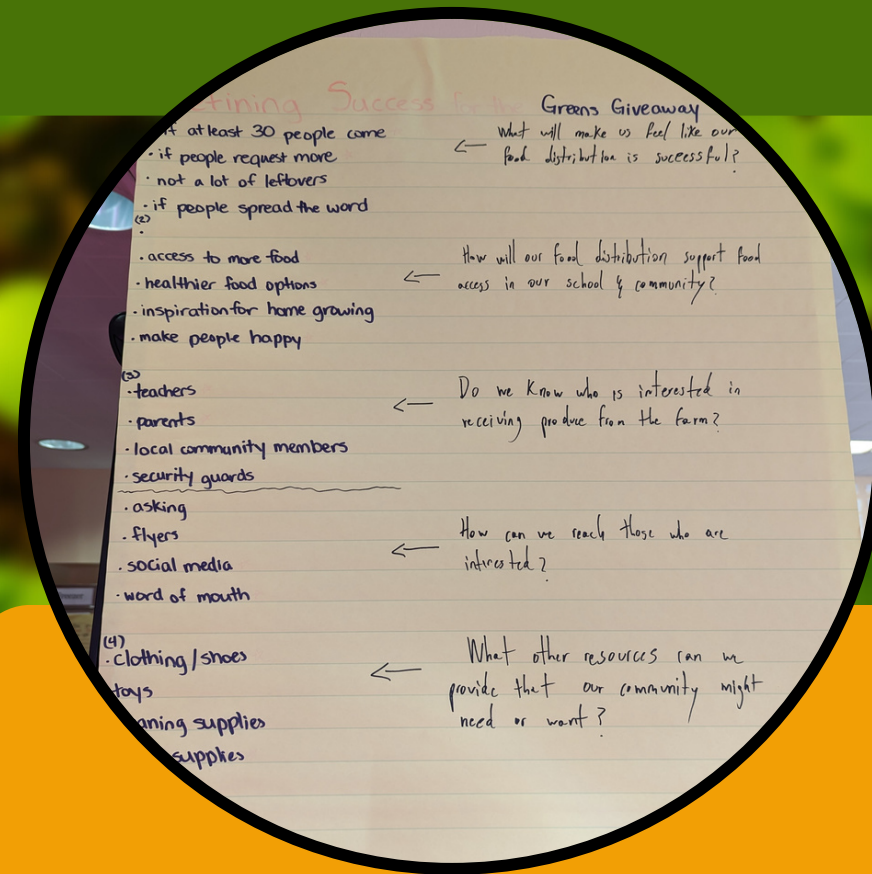 Success for the Greens Giveaway
if atleast 30 people come
· if people request more
· not a lot of leftovers
· if people spread the word
← What will make us feel like our
food distribution is successful?
(2)
·
· access to more food
· healthier food options
· inspiration for home growing
· make people happy
← How will our food distribution support food
access in our school & community?
(3)
· teachers
· parents
· local community members
· security guards
← Do we know who is interested in
receiving produce from the farm?
· asking
· flyers
· social media
· word of mouth
← How can we reach those who are
interested?
(4)
· clothing/shoes
toys
supplies
supplies
← What other resources can we
provide that our community might
need or want?